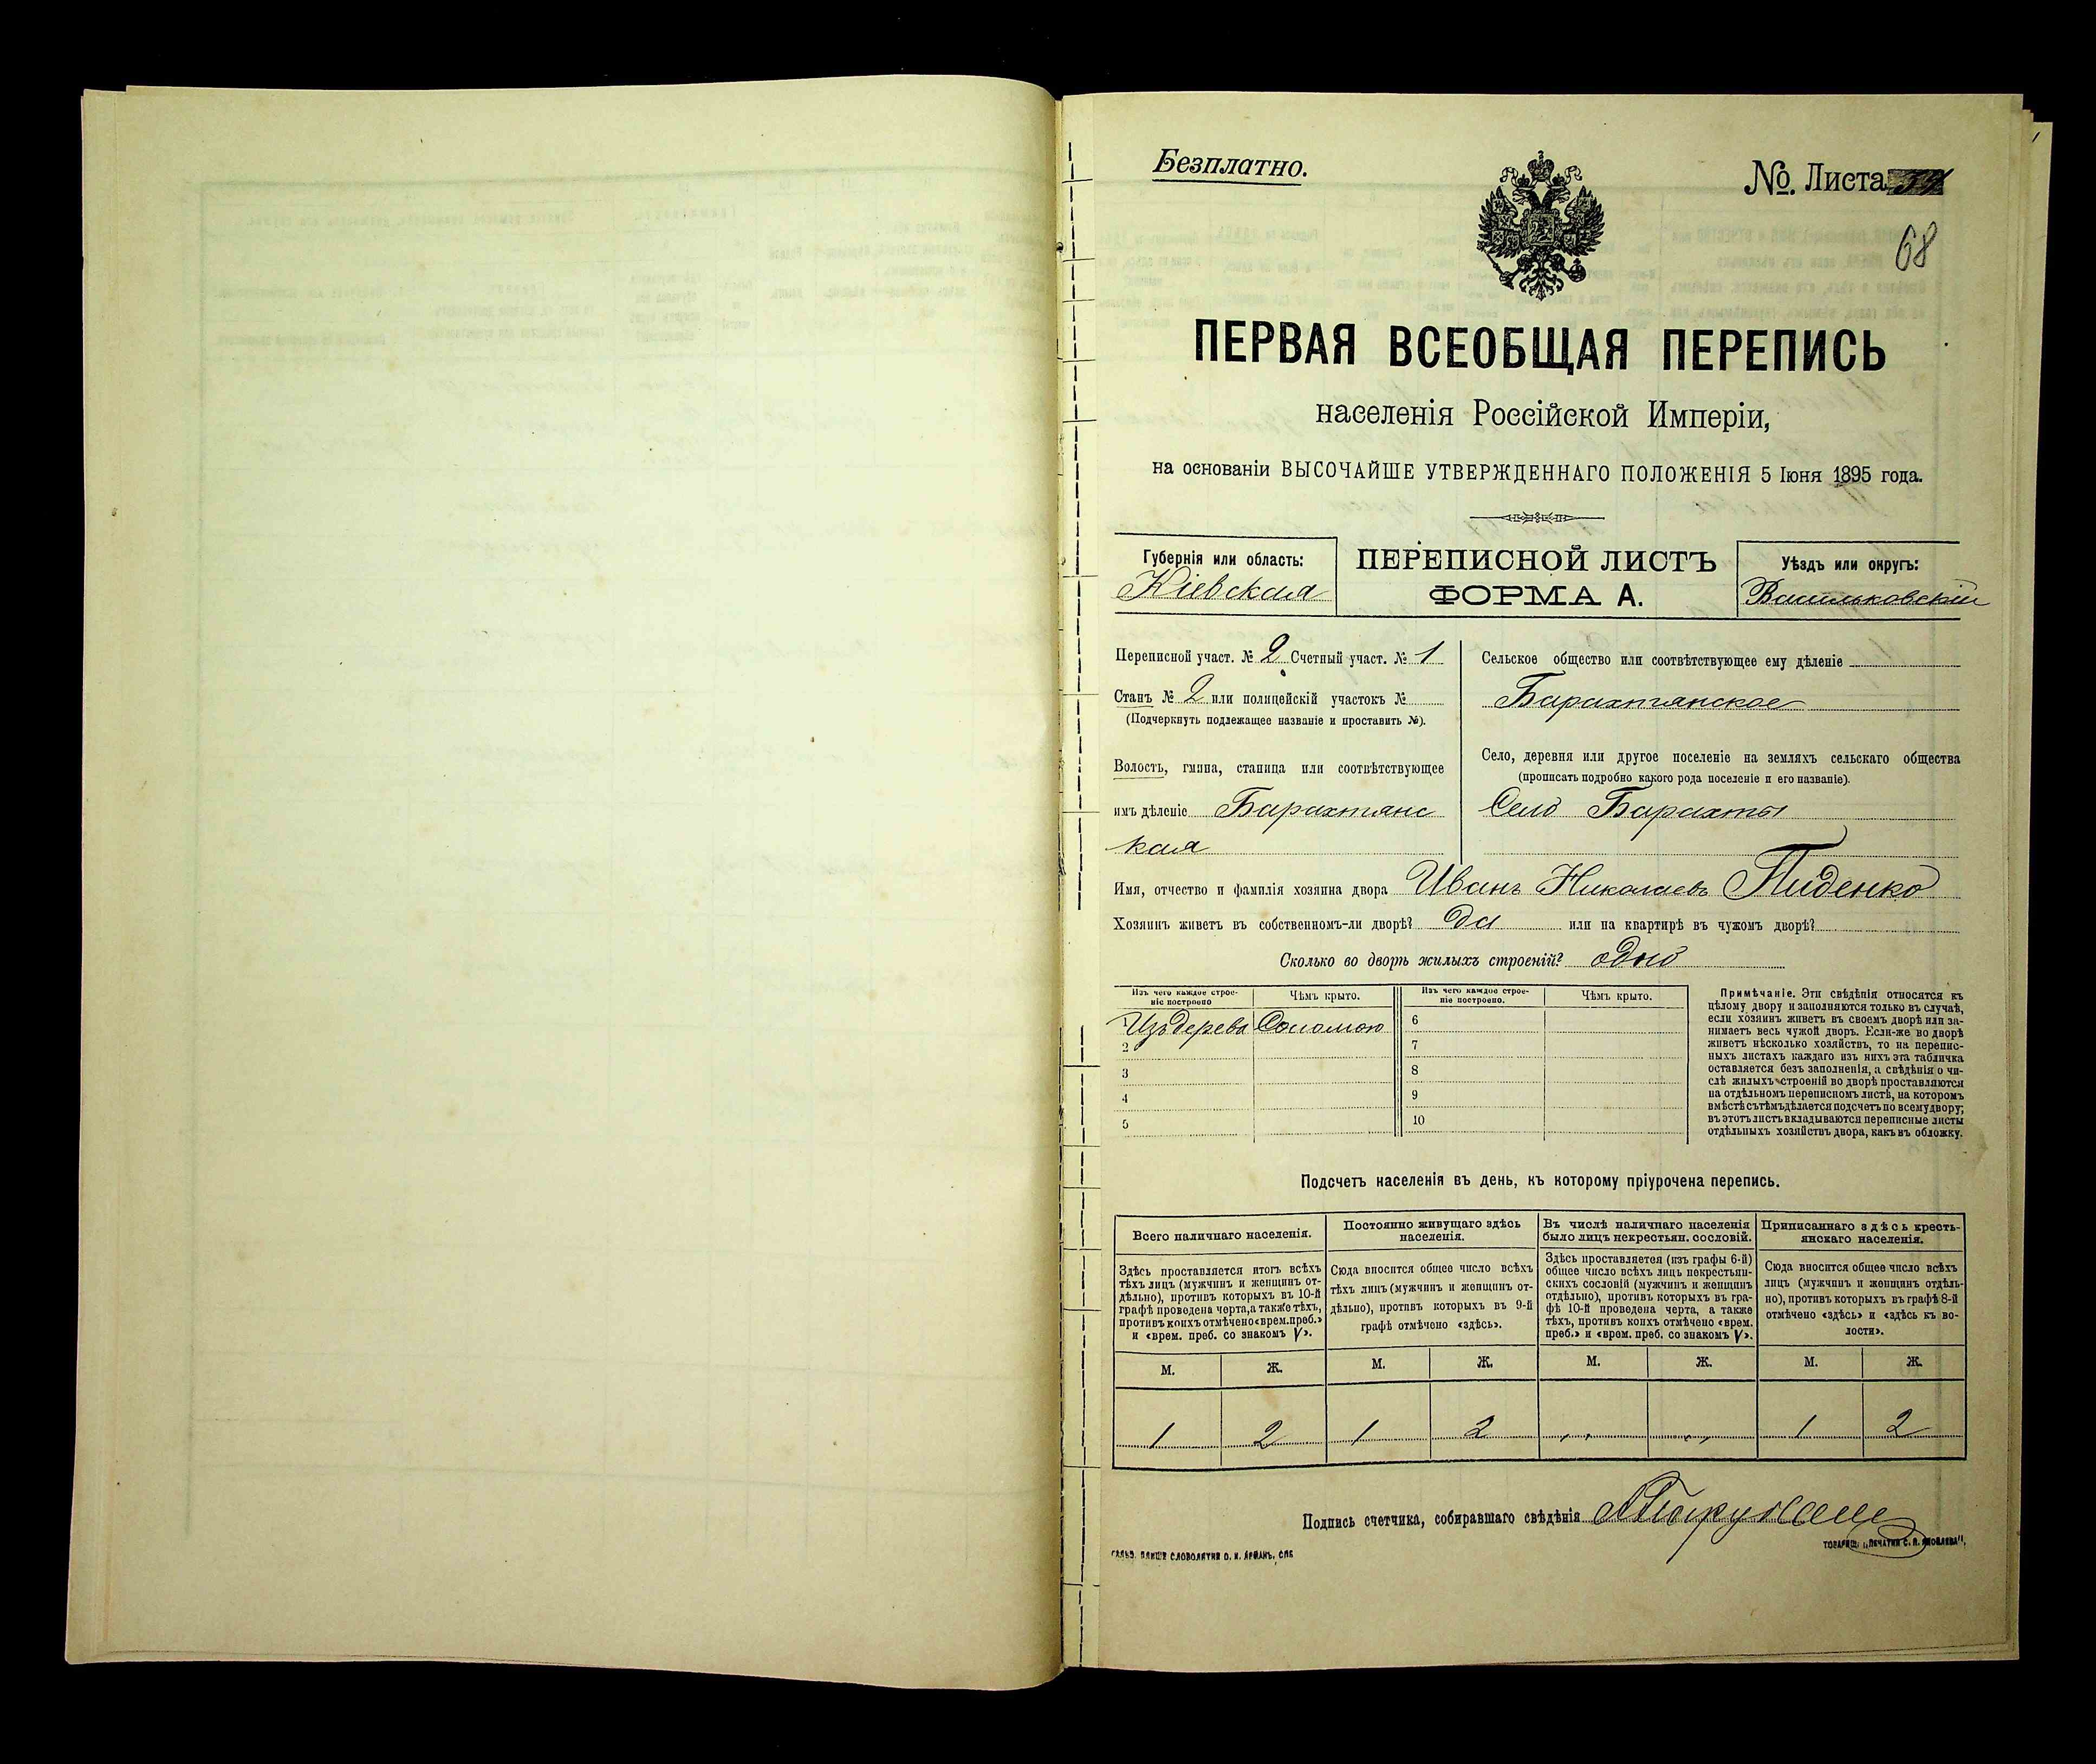 Безплатно.
№. Листа
68
ПЕРВАЯ ВСЕОБЩАЯ ПЕРЕПИСЬ
населенія Россійской Имперіи,
на основаніи ВЫСОЧАЙШЕ УТВЕРЖДЕННАГО ПОЛОЖЕНІЯ 5 Іюня 1895 года.
Губернія или область:
Кіевская
ПЕРЕПИСНОЙ ЛИСТЪ
ФОРМА А.
Уѣздъ или округъ:
Васильковскій
Переписной участ. № 2 Счетный участ. № 1
Станъ № 2 или полицейскій участокъ №
(Подчеркнуть подлежащее названіе и проставить №).
Волость, гмина, станица или соотвѣтствующее
имъ дѣленіе Барахтянс
кая
Сельское общество или соотвѣтствующее ему дѣленіе
Барахтянское
Село, деревня или другое поселеніе на земляхъ сельскаго общества
(прописать подробно какого рода поселеніе и его названіе).
Село Барахты
Имя, отчество и фамилія хозяина двора Иванъ Николаевъ Пиденко
Хозяинъ живетъ въ собственномъ-ли дворѣ? да или на квартирѣ въ чужомъ дворѣ?
Сколько во дворѣ жилыхъ строеній? одно
Изъ чего каждое строе-
ніе построено
Чѣмъ крыто.
Изъ чего каждое строе-
ніе построено.
Чѣмъ крыто.
1 Изъ дерева Соломою
2
3
4
5
6
7
8
9
10
Примѣчаніе. Эти свѣдѣнія относятся къ
цѣлому двору и заполняются только въ случаѣ,
если хозяинъ живетъ въ своемъ дворѣ или за-
нимаетъ весь чужой дворъ. Если-же во дворѣ
живетъ нѣсколько хозяйствъ, то на перепис-
ныхъ листахъ каждаго изъ нихъ эта табличка
оставляется безъ заполненія, а свѣдѣнія о чи-
слѣ жилыхъ строеній во дворѣ проставляются
на отдѣльномъ переписномъ листѣ, на которомъ
вмѣстѣ съ тѣмъ дѣлается подсчетъ по всему двору;
въ этотъ листъ вкладываются переписные листы
отдѣльныхъ хозяйствъ двора, какъ въ обложку.
Подсчетъ населенія въ день, къ которому пріурочена перепись.
Всего наличнаго населенія.
Здѣсь проставляется итогъ всѣхъ
тѣхъ лицъ (мужчинъ и женщинъ от-
дѣльно), противъ которыхъ въ 10-й
графѣ проведена черта, а также тѣхъ,
противъ коихъ отмѣчено «врем. преб.»
и «врем. преб. со знакомъ V».
Постоянно живущаго здѣсь
населенія.
Сюда вносится общее число всѣхъ
тѣхъ лицъ (мужчинъ и женщинъ от-
дѣльно), противъ которыхъ въ 9-й
графѣ отмѣчено «здѣсь».
Въ числѣ наличнаго населенія
было лицъ некрестьян. сословій.
Здѣсь проставляется (изъ графы 6-й)
общее число всѣхъ лицъ некрестьян-
скихъ сословій (мужчинъ и женщинъ
отдѣльно), противъ которыхъ въ гра-
фѣ 10-й проведена черта, а также
тѣхъ, противъ коихъ отмѣчено «врем.
преб.» и «врем. преб. со знакомъ V».
Приписаннаго здѣсь кресть-
янскаго населенія.
Сюда вносится общее число всѣхъ
лицъ (мужчинъ и женщинъ отдѣль-
но), противъ которыхъ въ графѣ 8-й
отмѣчено «здѣсь» и «здѣсь къ во-
лости».
М. Ж. М. Ж. М. Ж. М. Ж.
1 2 1 2 „ „ 1 2
Подпись счетчика, собиравшаго свѣдѣнія
СЛОВОЛИТНИ О. И. ЛЕМАНЪ, СПБ
ТОВАРИЩ. „ПЕЧАТНИ С. П. ЯКОВЛЕВА“,